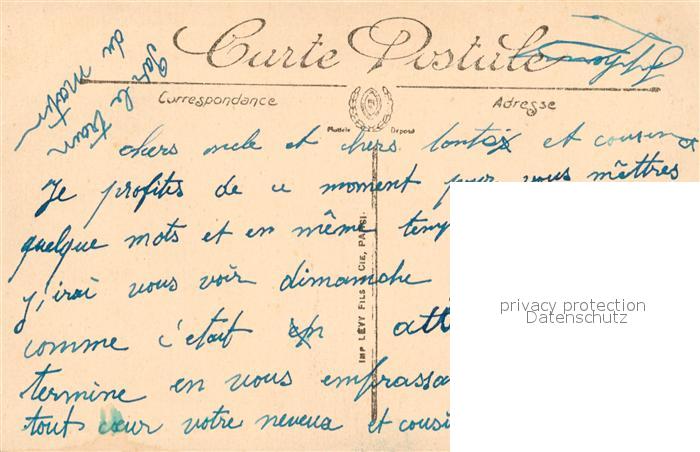 Carte Postale
Correspondance
Adresse
Modèle Déposé
Par le train
du matin
chers oncle et chers tantes et cousins
Je profites de ce moment pour vous mêttres
quelque mots et en même temp
j'irai vous voir dimamche
comme c'etait att
termine en vous emprassa
tout cœur votre neveux et cousi
IMP LÉVY FILS & CIE, PARIS.
privacy protection
Datenschutz